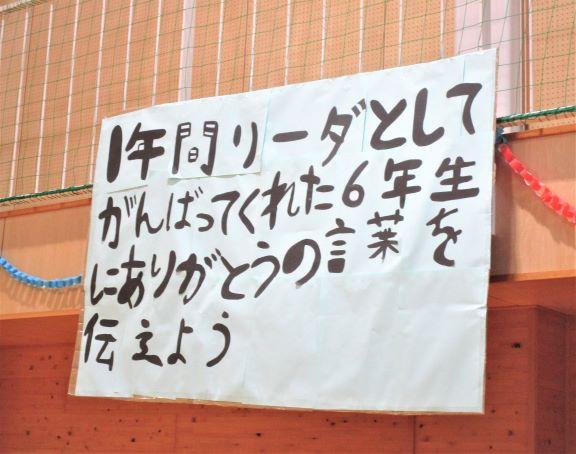 1年間リーダとして
がんばってくれた6年生
にありがとうの言葉を
伝えよう